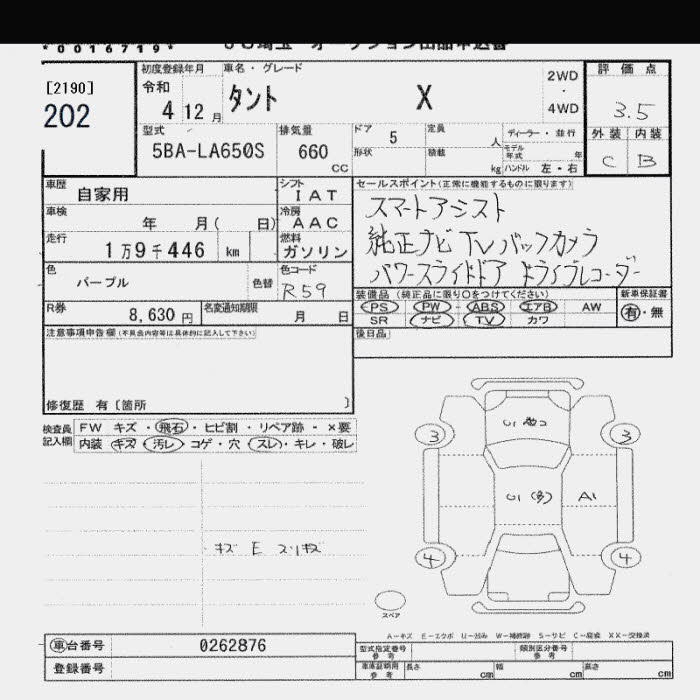 *0016719*
JU埼玉 オークション出品申込書
[2190]
202
初度登録年月
令和
4 12 月
車名・グレード
タント X
2WD
・
4WD
評価点
3.5
外装 内装
C B
型式
5BA-LA650S
排気量
660
CC
ドア 5
形状
定員 人
積載 kg
ディーラー・並行
モデル年式 年
ハンドル 左・右
車歴
自家用
シフト
IAT
車検
年 月( 日)
冷房
AAC
走行
1万9千446 km
燃料
ガソリン
色
パープル
色替
色コード
R59
R券
8,630 円
名変通知期限
月 日
セールスポイント(正常に機能するものに限ります)
スマートアシスト
純正ナビ TV バックカメラ
パワースライドドア ドライブレコーダー
装備品 (純正品に限り○をつけてください)
PS PW ABS エアB AW
SR ナビ TV カワ
新車保証書
有・無
注意事項申告欄(不具合内容等は具体的に記入して下さい)
後日品
修復歴 有〔箇所 〕
検査員記入欄
FW キズ・飛石・ヒビ割・リペア跡・×要
内装 キズ・汚レ・コゲ・穴・スレ・キレ・破レ
キズ E スリキズ
3
3
U1
U1 (多) A1
4
4
スペア
A-キズ E-エクボ U-凹み W-補修跡 S-サビ C-腐食 XX-交換済
車台番号
0262876
登録番号
型式指定番号
参考
類別区分番号
参考
車庫証明用
参考
長さ cm
幅 cm
高さ cm